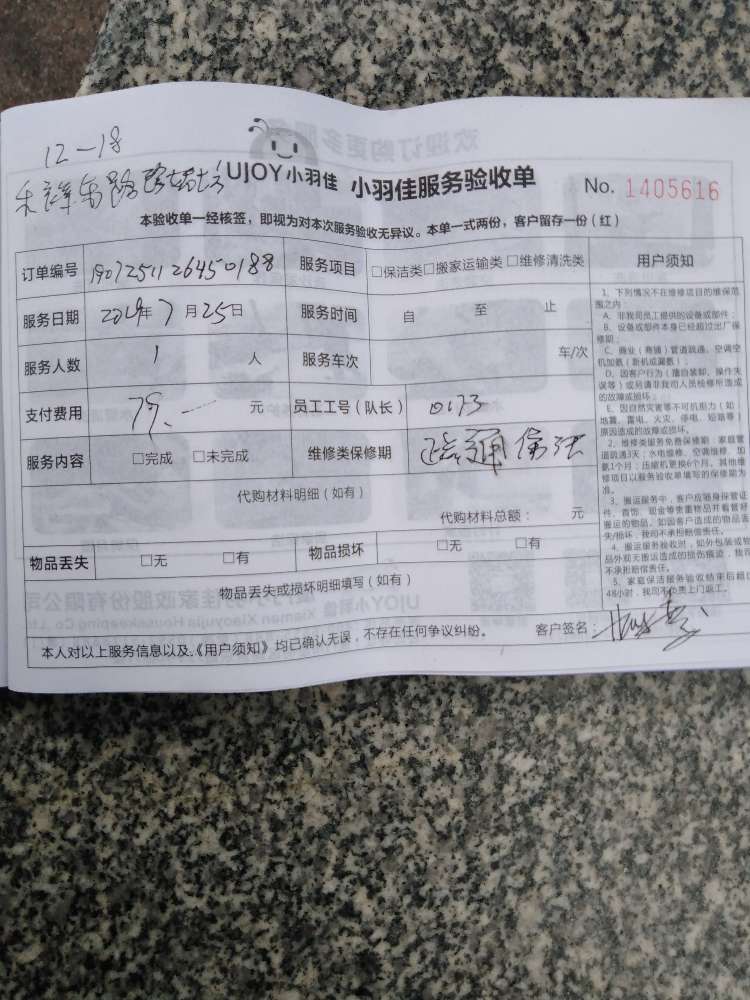 12-18
禾祥西路
UJOY小羽佳 小羽佳服务验收单 No. 1405616
本验收单一经核签，即视为对本次服务验收无异议。本单一式两份，客户留存一份（红）
订单编号 1907251126450188 服务项目 □保洁类□搬家运输类□维修清洗类
服务日期 2019年7月25日 服务时间 自 至 止
服务人数 1 人 服务车次 车/次
支付费用 79.— 元 员工工号（队长） 0173
服务内容 □完成 □未完成 维修类保修期 疏通
代购材料明细（如有）
代购材料总额： 元
物品丢失 □无 □有 物品损坏 □无 □有
物品丢失或损坏明细填写（如有）
本人对以上服务信息以及《用户须知》均已确认无误，不存在任何争议纠纷。 客户签名：
用户须知
1、下列情况不在维修项目的维保范
围之内：
A、非我司员工提供的设备或部件；
B、设备或部件本身已经超过出厂保
修期；
C、商业（商铺）管道疏通、空调空
机加氨（新机或漏氨）；
D、因客户行为（擅自装卸、操作失
误等）或另请非我司人员检修所造成
的故障或损坏；
E、因自然灾害等不可抗原力（如：
地震、雷电、火灾、停电、短路等）
原因造成的故障或损坏。
2、维修类服务免费保修期：家庭管
道疏通3天；水电维修、空调维修、加
氨1个月；压缩机更换6个月，其他维
修项目以服务验收单填写的保修期为
准。
3、搬运服务中，客户应随身保管证
件、首饰、现金等贵重物品并看管好
搬运的物品，如因客户造成的物品丢
失/损坏，我司不承担赔偿责任。
4、搬运服务验收时，如外包装或物
品外观无搬运造成的损伤痕迹，我司
不承担赔偿责任。
5、家庭保洁服务验收结束后超过
48小时，我司不负责上门返工。